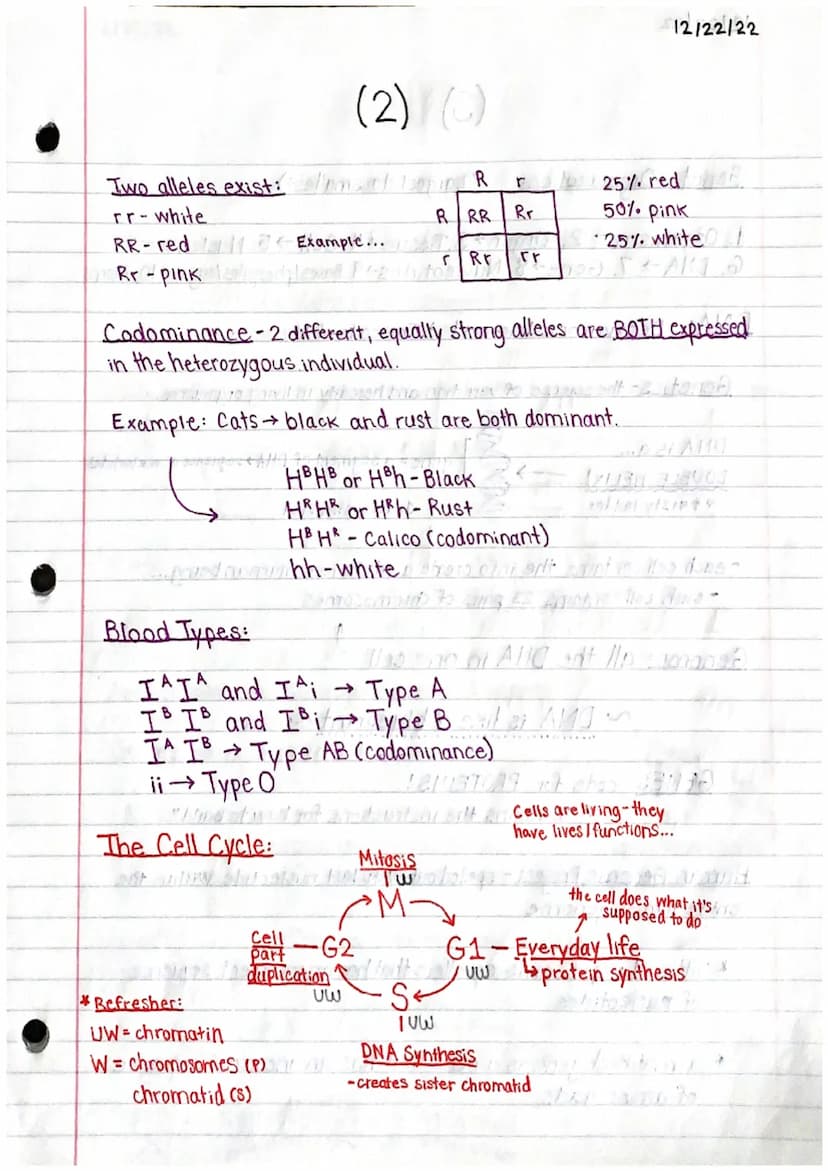 12/22/22
(2)
Two alleles exist:
rr - white
RR - red
Rr - pink
Example...
R r
R RR Rr
r Rr rr
25% red
50% pink
25% white
Codominance - 2 different, equally strong alleles are BOTH expressed
in the heterozygous individual.
Example: Cats → black and rust are both dominant.
HᴮHᴮ or Hᴮh - Black
HᴿHᴿ or Hᴿh - Rust
HᴮHᴿ - Calico (codominant)
hh - white
Blood Types:
IᴬIᴬ and Iᴬi → Type A
IᴮIᴮ and Iᴮi → Type B
IᴬIᴮ → Type AB (codominance)
ii → Type O
Cells are living - they
have lives / functions...
The Cell Cycle:
Mitosis
W
M
the cell does what it's
supposed to do
Cell
part
duplication
UW
G2
G1 - Everyday life
UW
↳ protein synthesis
S
UW
DNA Synthesis
- creates sister chromatid
* Refresher:
UW = chromatin
W = chromosomes (P)
chromatid (S)